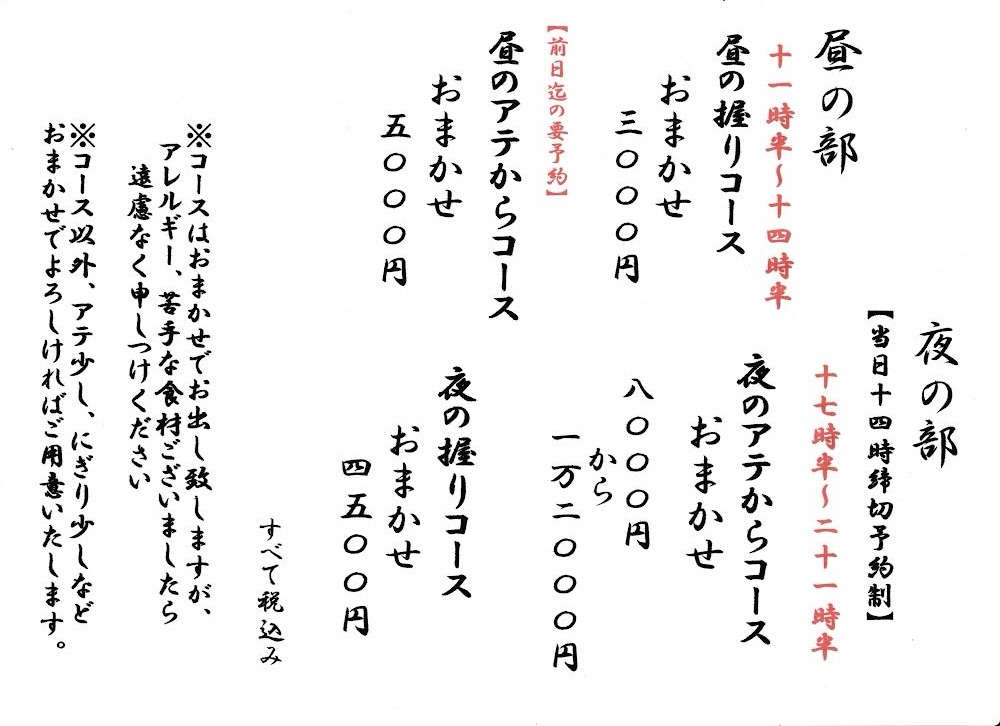 昼の部
十一時半～十四時半
昼の握りコース
おまかせ
三〇〇〇円
【前日迄の要予約】
昼のアテからコース
おまかせ
五〇〇〇円
夜の部
【当日十四時締切予約制】
十七時半～二十一時半
夜のアテからコース
おまかせ
八〇〇〇円
から
一万二〇〇〇円
夜の握りコース
おまかせ
四五〇〇円
すべて税込み
※コースはおまかせでお出し致しますが、
アレルギー、苦手な食材ございましたら
遠慮なく申しつけください
※コース以外、アテ少し、にぎり少しなど
おまかせでよろしければご用意いたします。